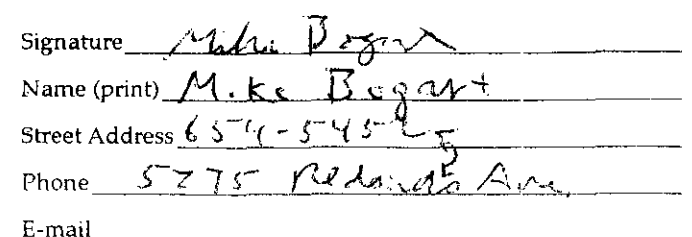 Signature Mike Bogart
Name (print) Mike Bogart
Street Address 654-545
Phone 5275 Redondo Ave.
E-mail